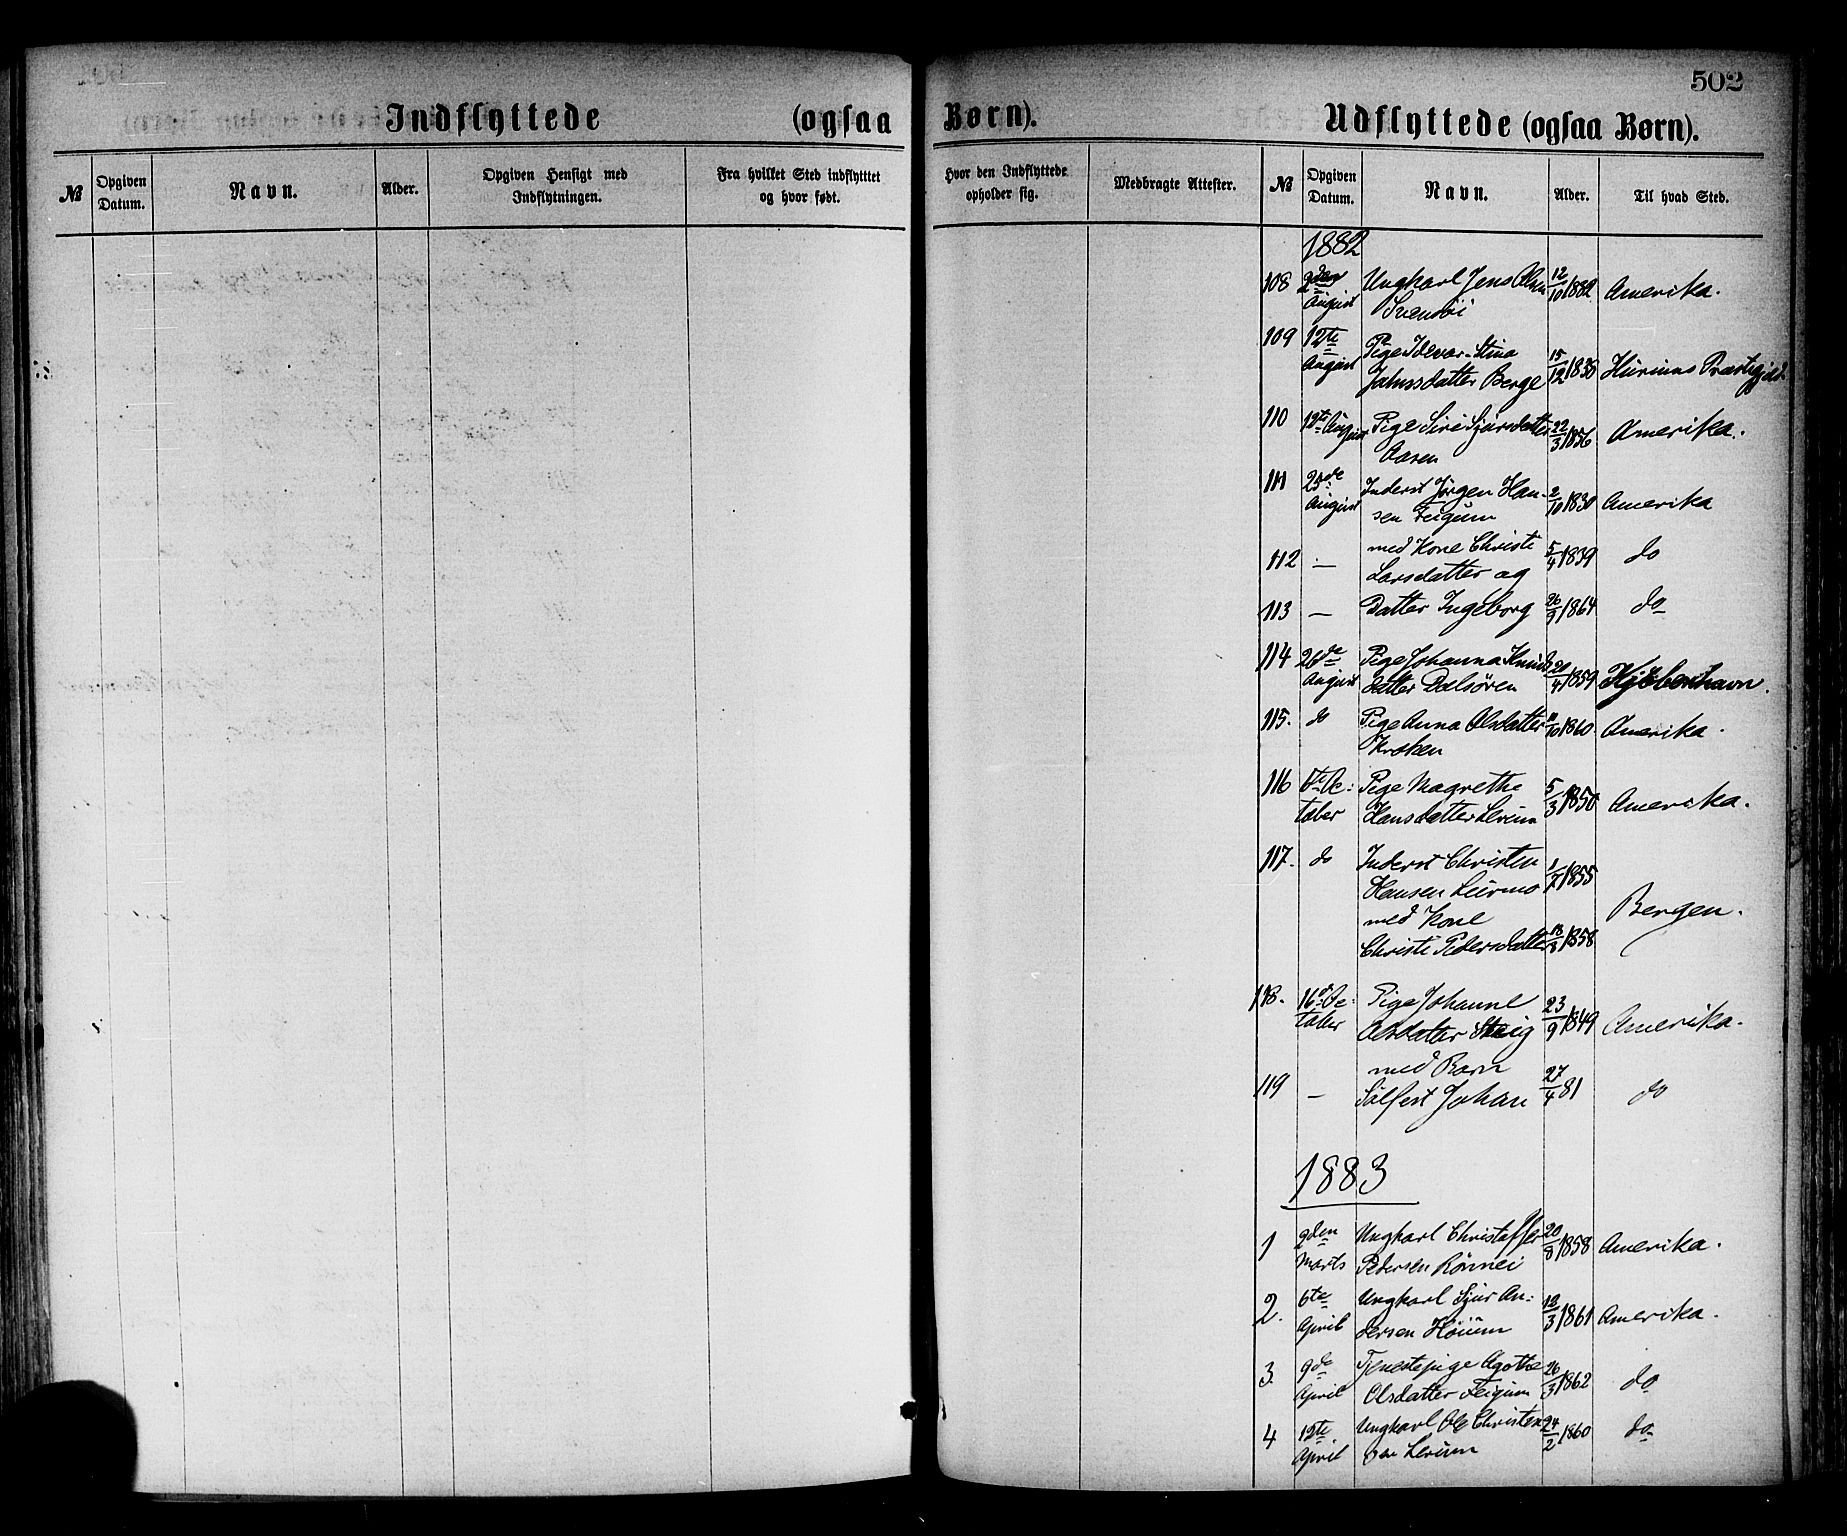 502
Indflyttede (ogsaa Børn).
Udflyttede (ogsaa Børn).
№ Opgiven Datum. Navn. Alder. Opgiven Hensigt med Indflytningen. Fra hvilket Sted indflyttet og hvor født. Hvor den Indflyttede opholder sig. Medbragte Attester. № Opgiven Datum. Navn. Alder. Til hvad Sted.
1882
108 2den Ungkarl Jens Olsen 12/10 1882 Amerika.
August Svensøi
109 12te Pige
August Jahnsdatter Berge 15/12 1830 Præstegjeld.
110 12te August Pige Siri Sjursdatter 22/3 1856 Amerika.
Aasen
111 25de Inderst Jørgen Han-
August sen Feigum 2/10 1830 Amerika
112 — med Kone Christi 5/4 1839 do
Larsdatter og
113 — Datter Ingeborg 26/9 1864 do
114 26de Pige Johanna Knuds
August datter Dalsøren 20/4 1859 Kjöbenhavn.
115. do Pige Anna Olsdatter 11/10 1860 Amerika.
Kroken
116 Oc: Pige Magrethe 5/3 1850 Amerika.
tober Hansdatter Lerum
117. do Inderst Christen 1/7 1855
Hansen Leirmo
med Kone Bergen.
Christi Pedersdatter 18/8 1858
118. 16d Oc: Pige Johanne 23/9 1849 Amerika.
tober Olsdatter Steig
med Barn
119 — Sølfest Johan 27/4 81 do
1883
1 9den Ungkarl Christoffer 20/8 1858 Amerika.
Marts Pedersen Rönnei
2. 6te Ungkarl Sjur An:
April dersen Høium 13/3 1861 Amerika.
3. 9de Tjenestepige Agothe 26/3 1862 do
April Olsdatter Feigum
4 12te Ungkarl Ole Christen 24/2 1860 do
April sen Lerum